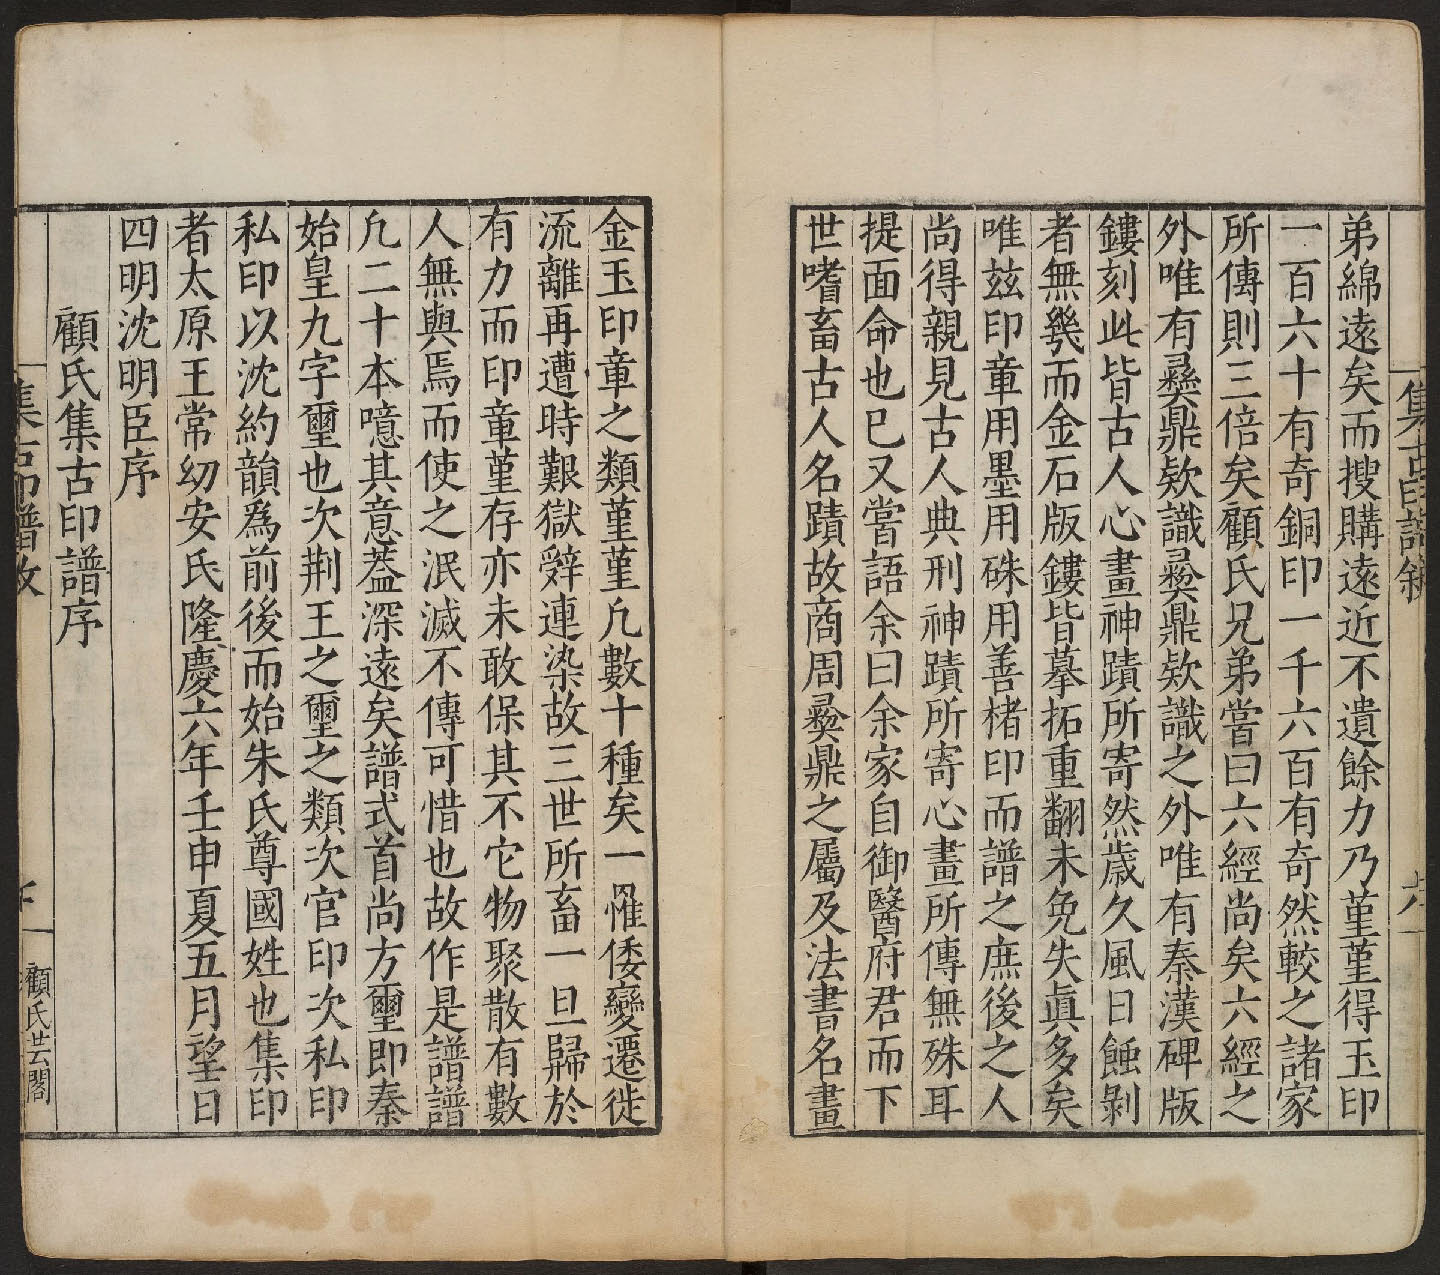 集古印譜敘
六
弟綿遠矣而搜購遠近不遺餘力乃堇堇得玉印
一百六十有奇銅印一千六百有奇然較之諸家
所傳則三倍矣顧氏兄弟嘗曰六經尚矣六經之
外唯有彞鼎欵識彞鼎欵識之外唯有秦漢碑版
鏤刻此皆古人心畫神蹟所寄然歲久風日蝕剝
者無幾而金石版鏤皆摹拓重翻未免失眞多矣
唯玆印章用墨用硃用善楮印而譜之庶後之人
尚得親見古人典刑神蹟所寄心畫所傳無殊耳
提面命也已又嘗語余曰余家自御醫府君而下
世嗜畜古人名蹟故商周彞鼎之屬及法書名畫
金玉印章之類堇堇凢數十種矣一罹倭變遷徙
流離再遭時艱獄辤連染故三世所畜一旦歸於
有力而印章堇存亦未敢保其不它物聚散有數
人無與焉而使之泯滅不傳可惜也故作是譜譜
凢二十本噫其意葢深遠矣譜式首尚方璽即秦
始皇九字璽也次荆王之璽之類次官印次私印
私印以沈約韻爲前後而始朱氏尊國姓也集印
者太原王常㓜安氏隆慶六年壬申夏五月望日
四明沈明臣序
顧氏集古印譜序
集古印譜敘
顧氏芸閣